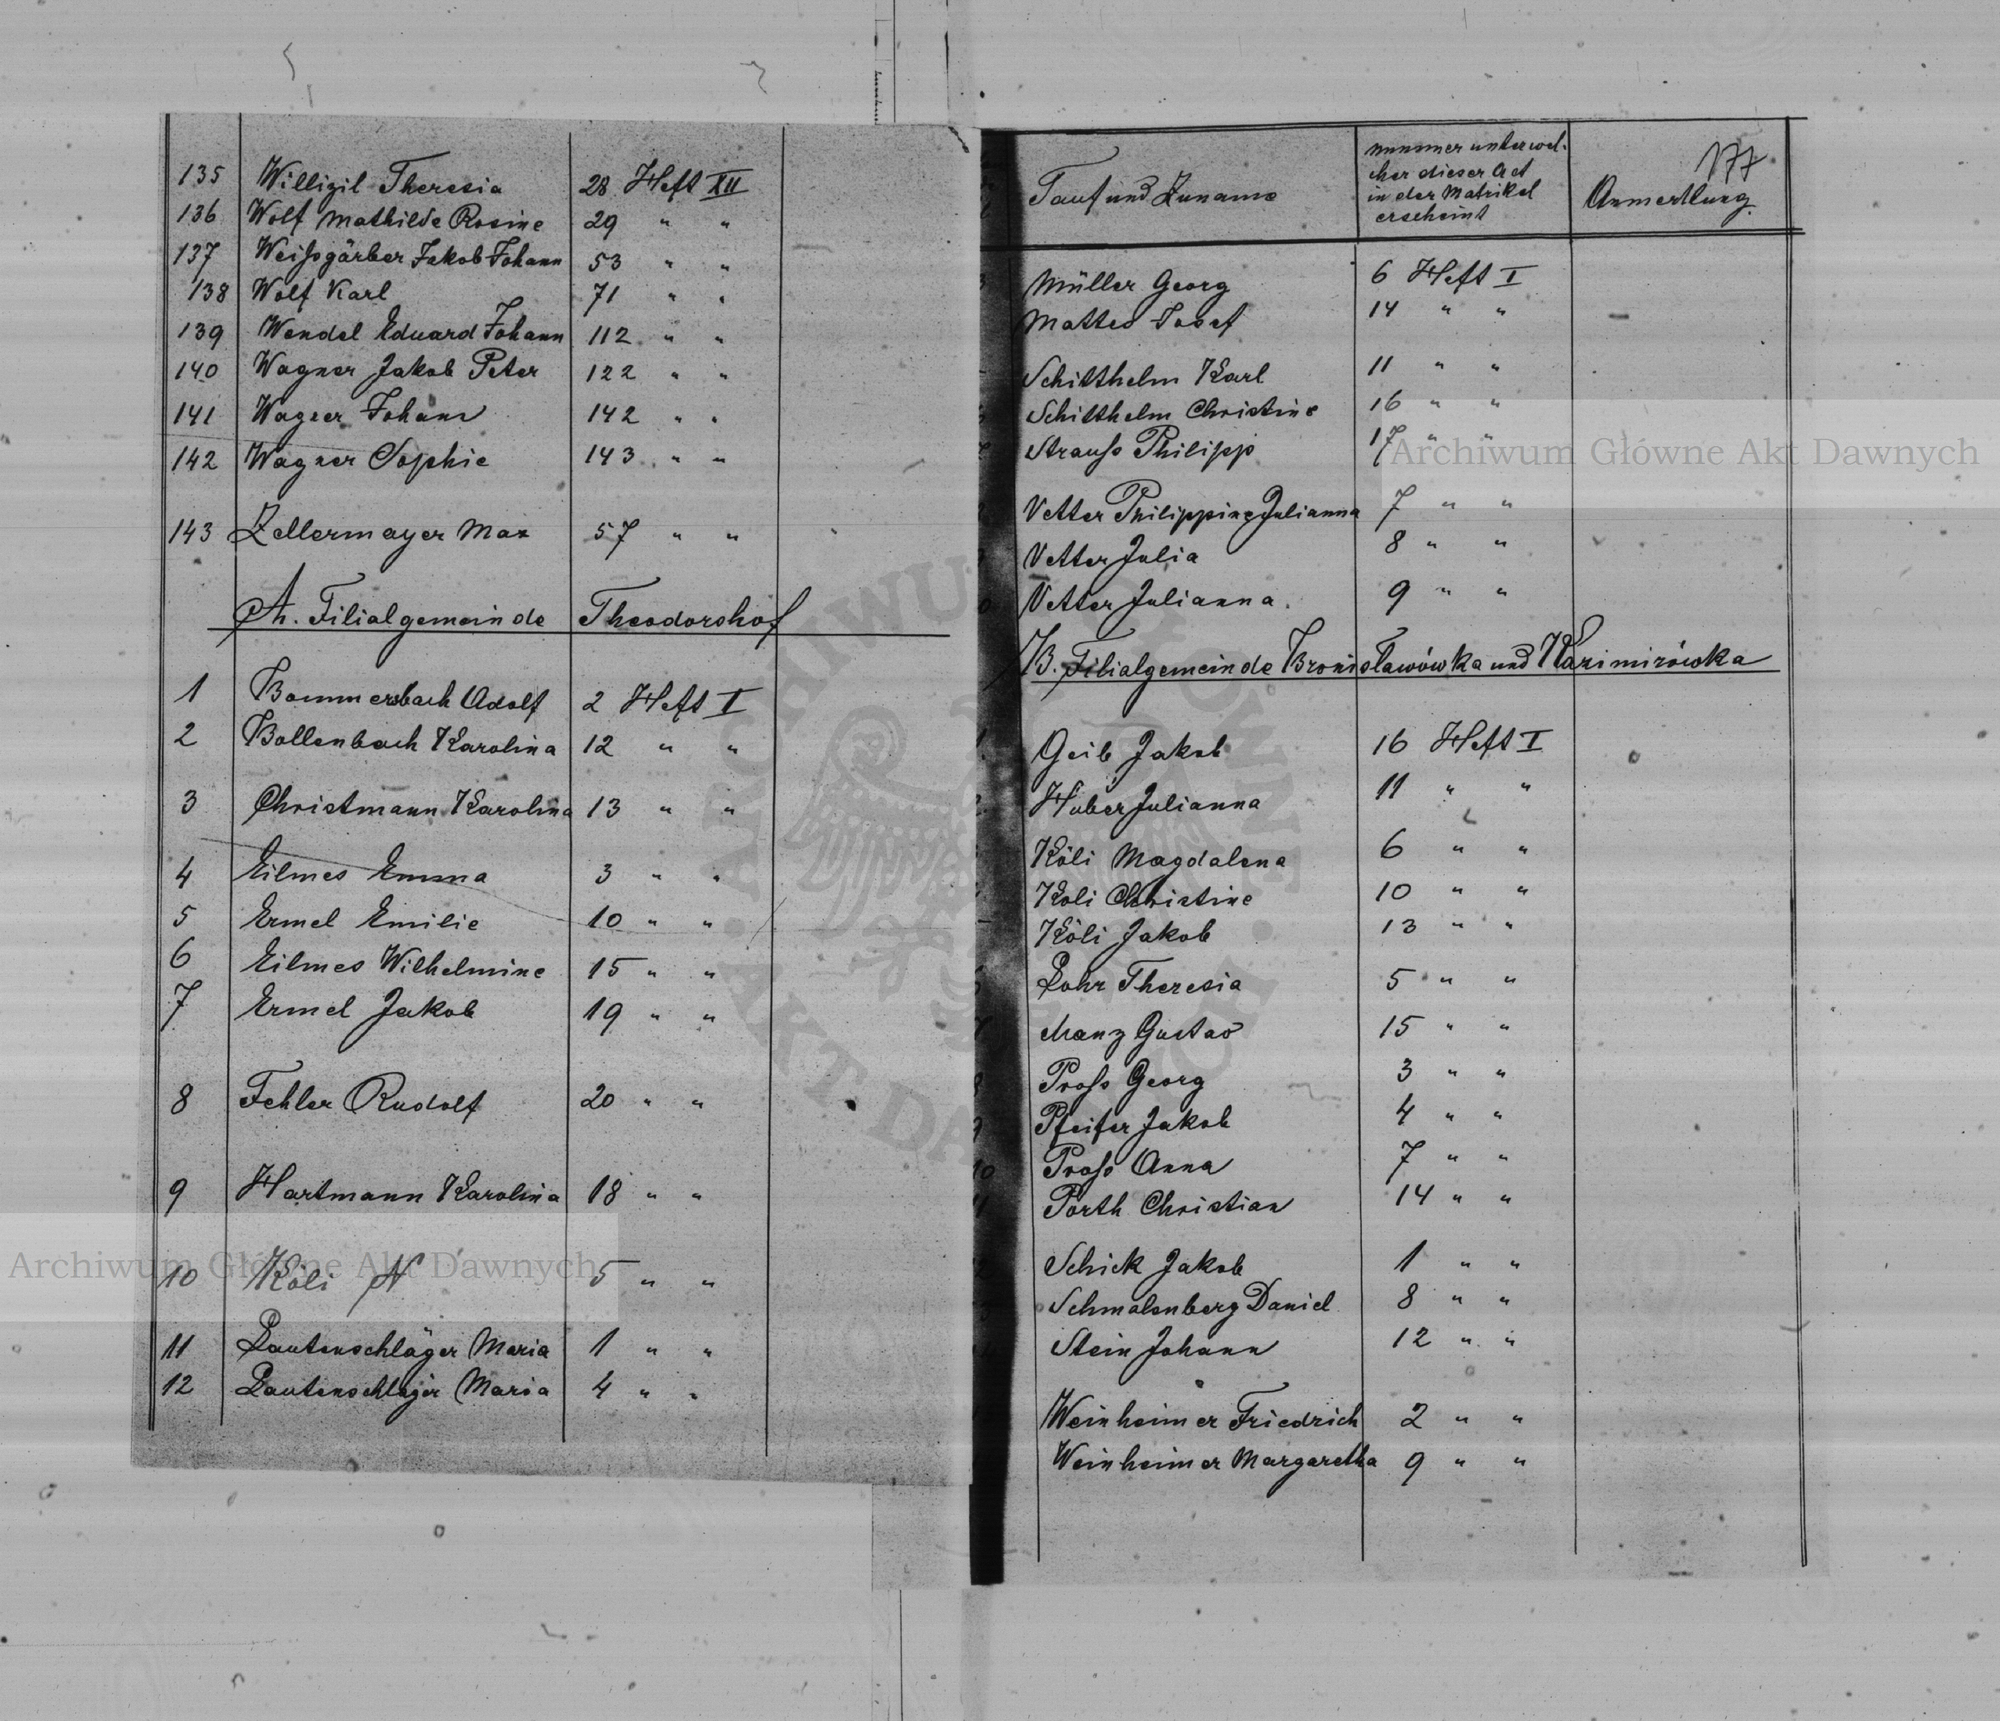 135 Willigil Theresia 28 Heft XII
136 Wolf Mathilde Rosine 29 " "
137 Weißgärber Jakob Johann 53 " "
138 Wolf Karl 71 " "
139 Wendel Eduard Johann 112 " "
140 Wagner Jakob Peter 122 " "
141 Wagner Johann 142 " "
142 Wagner Sophie 143 " "
143 Zellermayer Max 57 " "
A. Filialgemeinde Theodorshof
1 Bommersbach Adolf 2 Heft I
2 Bollenbach Karolina 12 " "
3 Christmann Karolina 13 " "
4 Eilmes Emma 3 " "
5 Ermel Emilie 10 " "
6 Eilmes Wilhelmine 15 " "
7 Ermel Jakob 19 " "
8 Fehler Rudolf 20 " "
9 Hartmann Karolina 18 " "
10 Köli N 5 " "
11 Lautenschläger Maria 1 " "
12 Lautenschläger Maria 4 " "
177
Tauf und Zuname
nummer unter wel-
cher dieser Act
in der Matrikel
erscheint
Anmerkung
Müller Georg 6 Heft I
Matteo Josef 14 " "
Schitthelm Karl 11 " "
Schitthelm Christine 16 " "
Strauß Philipp 17 " "
Vetter Philippine Julianna 7 " "
Vetter Julia 8 " "
Vetter Julianna 9 " "
B. Filialgemeinde Bronisławówka und Kazimirówka
Geib Jakob 16 Heft I
Huber Julianna 11 " "
Köli Magdalena 6 " "
Koli Christine 10 " "
Köli Jakob 13 " "
Lohr Theresia 5 " "
Manz Gustav 15 " "
Proß Georg 3 " "
Pfeifer Jakob 4 " "
10 Proß Anna 7 " "
11 Porth Christian 14 " "
Schick Jakob 1 " "
Schmalenberg Daniel 8 " "
Stein Johann 12 " "
Weinheimer Friedrich 2 " "
Weinheimer Margaretha 9 " "
Archiwum Główne Akt Dawnych
Archiwum Główne Akt Dawnych